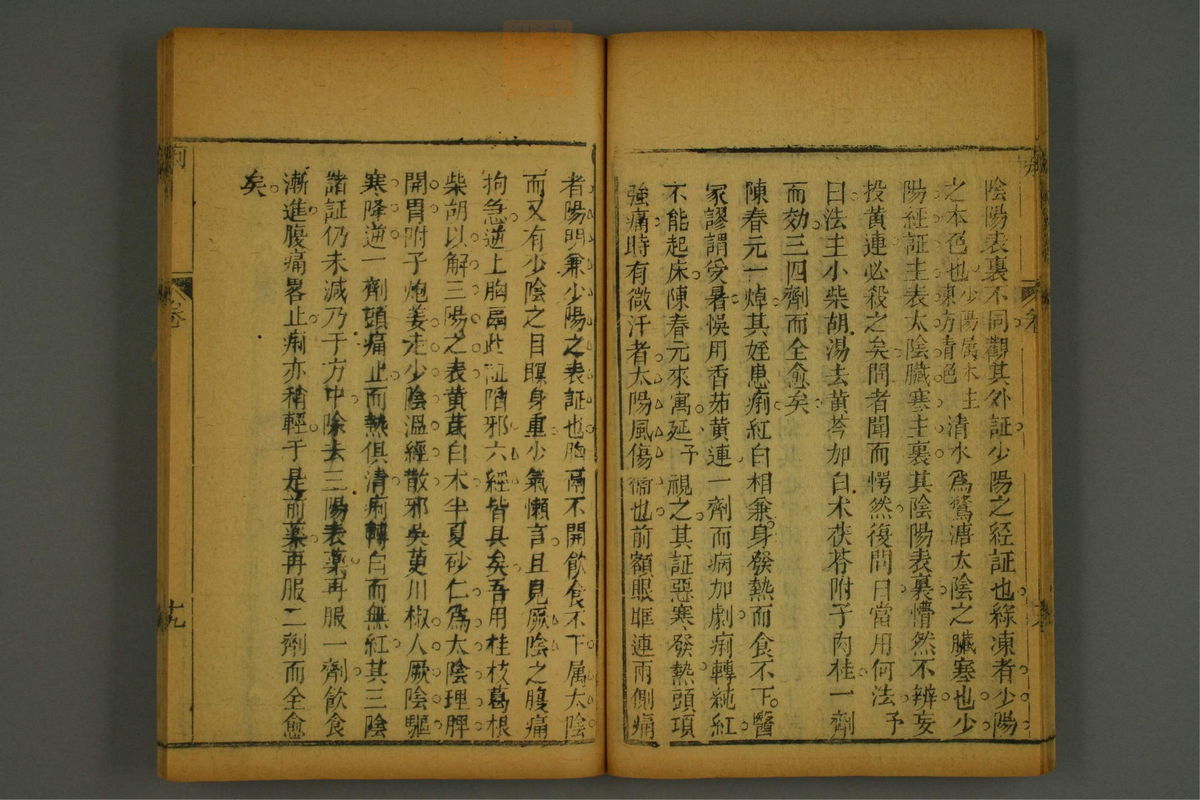 陰陽表裏不同觀其外証少陽之経証也綠凍者少陽
之本色也少陽属木主東方青色清水為鶩溏太陰之臟寒也少
陽経証主表太陰臟寒主裏其陰陽表裏懵然不辨妄
投黃連必殺之矣問者聞而愕然復問曰當用何法予
曰法主小柴胡湯去黃芩加白术茯苓附子肉桂一劑
而効三四劑而全愈矣
陳春元一焯其姪患痢紅白相兼身發熱而食不下醫
家謬謂受暑悞用香茹黃連一劑而病加劇痢轉純紅
不能起床陳春元來寓延予視之其証惡寒發熱頭項
強痛時有微汗者太陽風傷衞也前額眼眶連両側痛
者陽明兼少陽之表証也胸膈不開飲食不下属太陰
而又有少陰之目瞑身重少氣懶言且見厥陰之腹痛
拘急逆上胸膈此証陪邪六經皆具矣吾用桂枝葛根
柴胡以解三陽之表黃芪白术半夏砂仁為太陰理脾
開胃附子炮姜走少陰溫經散邪吳萸川椒人厥陰驅
寒降逆一劑頭痛止而熱俱清痢轉白而無紅其三陰
諸証仍未減乃于方中除去三陽表藥再服一劑飲食
漸進腹痛畧止痢亦稍輕于是前藥再服二劑而全愈
矣
痢
卷
十九